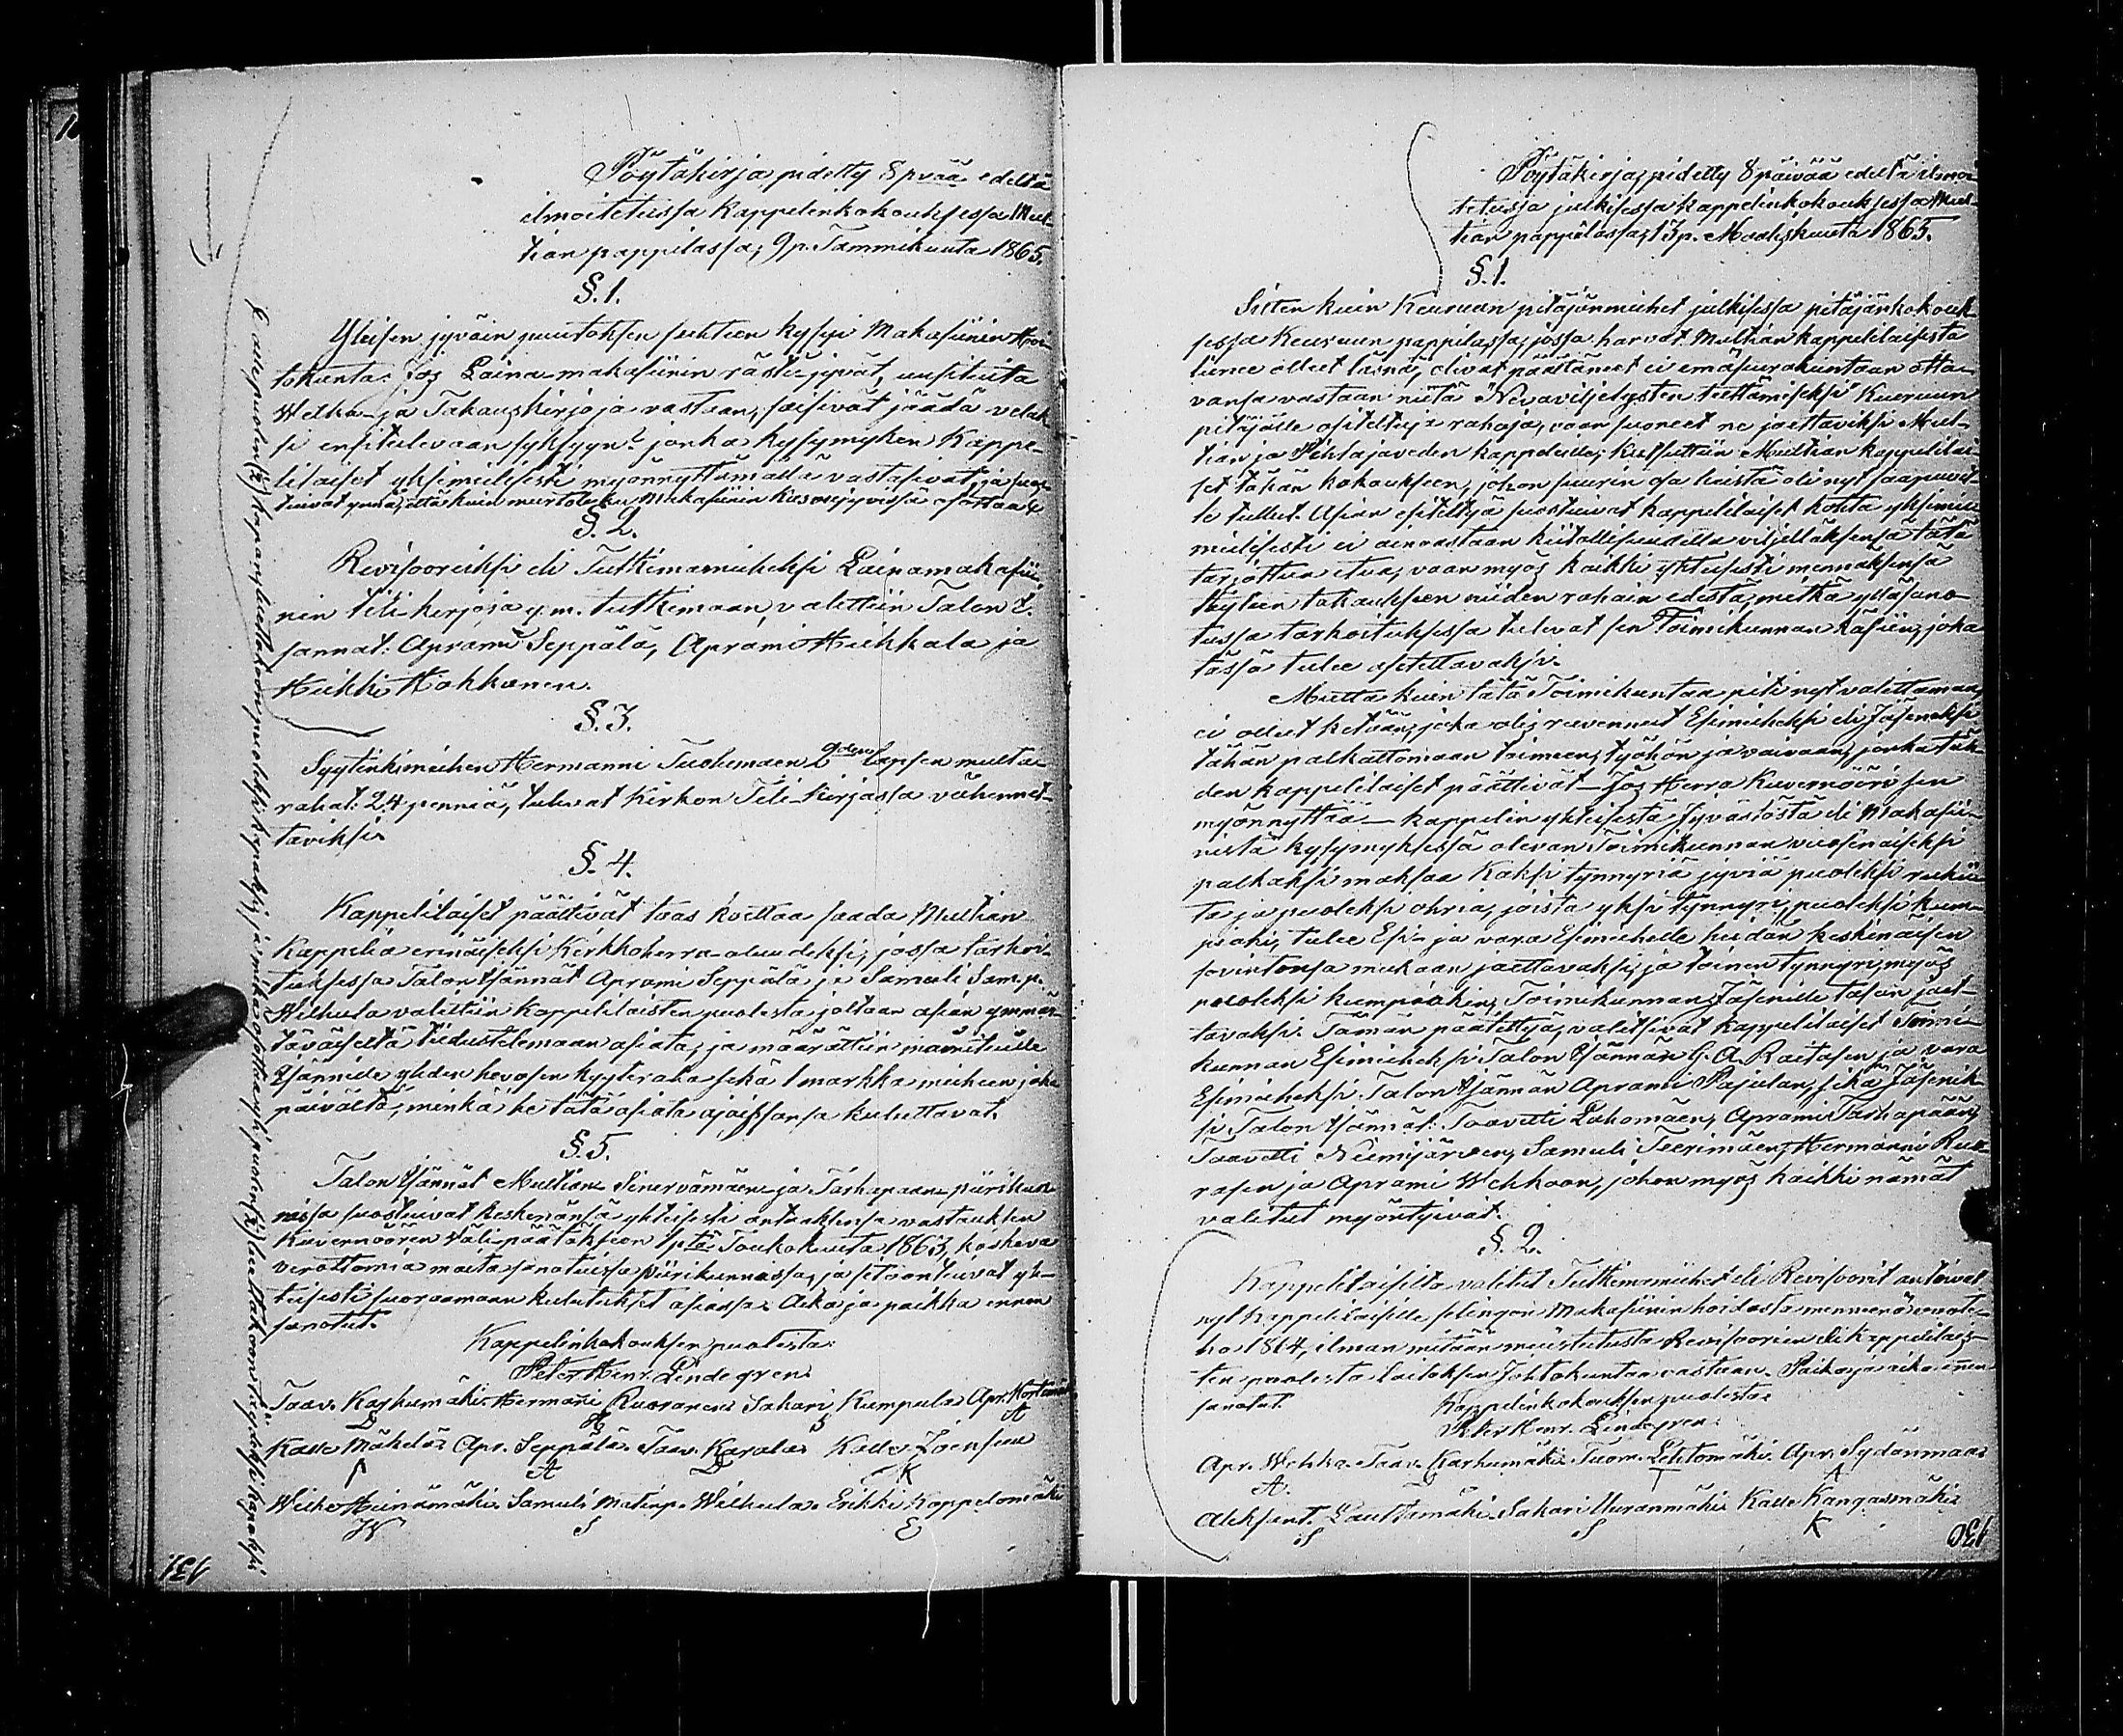 Pöytäkirja, pidetty 8 pvää edeltä
ilmoitetussa Kappelinkokouksessa Mul-
tian pappilassa, 9 p. Tammikuuta 1865.
§. 1.
Yleisen jyväin puutoksen suhteen kysyi Makasiinin Hoi-
tokunta: Jos Laina-makasiinin rästijyvät, uusituita
Welka- ja Takauskirjoja vastaan, saisivat jäädä velak-
si ensitulevaan syksyyn? jonka kysymyksen Kappe-
lilaiset yksimielisesti myönnyttämällä vastasivat, ja suos-
tuivat
§. 2.
Revisooreiksi eli Tutkimamiehiksi Lainamakasii-
nin tili-kirjoja y.m. tutkimaan, valittiin Talon I-
sännät: Aprami Seppälä, Aprami Huhkala ja
Heikki Hokkanen.
§. 3.
Syytinkimiehen Hermanni Tuohimäen 2den lapsen multa-
rahat: 24 penniä, tulevat Kirkon Tili-Kirjassa vähennet-
täviksi.
§. 4.
Kappelilaiset päättivät taas koettaa saada Multian
Kappelia erinäiseksi Kirkkoherra-alueudeksi, jossa tarkoi-
tuksessa Talon Isännät Aprami Seppälä ja Samuli Sam.p.
Wilhula valittiin Kappelilaisten puolesta joltaan asian ymmär-
täväiseltä tiedustelemaan asiata, ja määrättiin mainituille
Isännille yhden hevosen kyytiraha sekä 1 markka mieheen joka
päivältä, minkä he tätä asiata ajaissansa kuluttavat.
§. 5.
Talon Isännät Multian Sinervämäen ja Tarhapään piirikun-
nissa suostuivat keskenänsä yhteisesti antaaksensa vastauksen
Kuvernöörin Väli-päätökseen 1 p:tä Toukokuuta 1863, koskeva
verottomia maita sanotuissa piirikunnissa, ja sitoontuivat yh-
teisesti suoraamaan kulutukset asiassa. Aika ja paikka ennen
sanotut.
Kappelinkokouksen puolesta:
Peter Henr. Lindegren.
Taav. Karhumäki. Hermanni Ruoranen. Sakari Kumpula. Apr.
Kalle Mäkelä. Apr. Seppälä. Taav. Karala. Kalle
A K
Wilho Heinämäki. Samuli Mat.inp. Wilhula. Erikki Koppelomäki
W S E
131.
Pöytäkirja, pidetty 8 päivää edeltä ilmoi-
tetussa julkisessa kappelinkokouksessa Mul-
tian pappilassa, 13 p. Maaliskuuta 1865.
§. 1.
Sitten kuin Keuruun pitäjänmiehet julkisessa pitäjänkokouk-
sessa Keuruun pappilassa, jossa harvat Multian kappelilaisista
lienee olleet läsnä, olivat päättäneet ei emäseurakuntaan otta-
vansa vastaan niitä Nevaviljelysten teettämiseksi Kueruun
pitäjälle asiteltuja rahoja, vaan suoneet ne jaettaviksi Mul-
tian ja Pihlajaveden kappeleille, kutsuttiin Multian kappelilai-
set tähän kokoukseen, johon suurin osa heistä oli nyt saapuvil-
le tullut. Asian esiteltyä suostuivat kappelilaiset kohta yksimie-
mielisesti ei ainoastaan kiitollisuudella viljelläksensä tätä
tarjottua etua, vaan myös kaikki yhteisesti mennäksensä
täyteen takaukseen niiden rahain edestä, mitkä ylläsano-
tussa tarkoituksessa tulevat sen Toimikunnan käsiin, joka
tässä tulee asetettavaksi.
Mutta kuin tätä Toimikuntaa piti nyt valittaman,
ei ollut ketään, joka olis ruvennut Esimieheksi eli Jäseneksi
tähän palkattomaan toimeen, työhön ja vaivaan, jonka täh-
den kappelilaiset päättivät - Jos Herra Kuvernööri sen
myönnyttää - kappelin yhteisestä Jyvästöstä eli Makasii-
nista kysymyksessä olevan Toimikunnan vuosinaiseksi
palkaksi maksaa Kaksi tynnyriä jyviä puoleksi rukii-
ta ja puoleksi ohria, joista yksi tynnyri, puoleksi kum-
piaki, tulee Esi- ja vara Esimiehelle heidän keskinäisen
sovintonsa mukaan jaettavaksi, ja toinen tynnyri, myös
puoleksi kumpiakin, Toimikunnan Jäsenille tasan jaet-
tavaksi. Tämän päätettyä, valitsivat kappelilaiset Toimi-
kunnan Esimieheksi Talon Isännän G. A. Raitasen ja vara
Esimieheksi Talon Isännän Aprami Pajulan, sekä Jäsenik-
si Talon Isännät: Taavetti Lahomäen, Aprami Tarhapään,
Taavetti Niemijärven, Samuli Teerimäen, Hermanni Ruo-
rasen ja Aprami Wehkoon, johon myös kaikki nämät
valitut myöntyivät.
§. 2.
Kappelilaisilta valitut Tutkimamiehet eli Revisoorit antoivat
nyt Kappelilaisille selingon Makasiinin hoidosta mennenä vuote-
na 1864, ilman mitään muistutusta Revisoorien eli Kappelilais-
ten puolesta laitoksen Johtokuntaa vastaan. Paika ja aika ennen
sanotut.
Kappelinkokouksen puolesta:
Peter Henr. Lindegren.
Apr. Wehka. Taav. Karhumäki. Tuom. Lehtomäki. Apr. Sydänmaa
A. T A
Aleksant. Lauttamäki. Sakari Uuranmäki. Kalle Kangasmäki
S S K
130